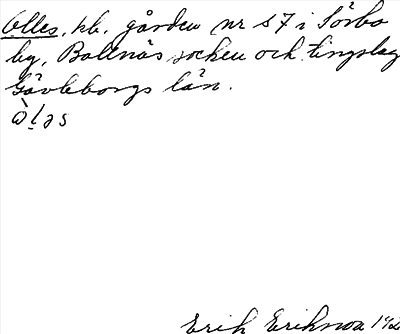 Olles, hb. gården nr 57 i Sörbo
by, Bollnäs socken och tingslag
Gävleborgs län.
Erik Erikson